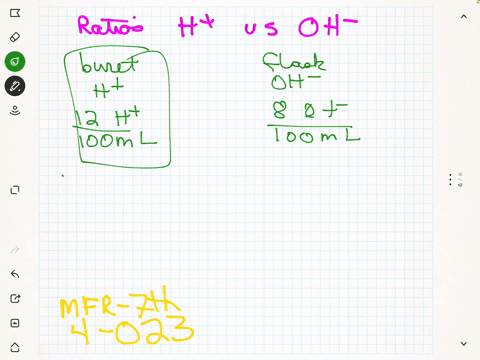 Ratios H+ vs OH-
buret
H+
12 H+
100mL
flask
OH-
8 OH-
100mL
MFR-7th
4-023